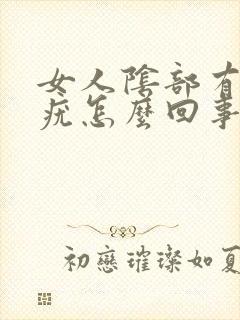 女人陰部有
疣怎麼回事
初戀璀璨如夏